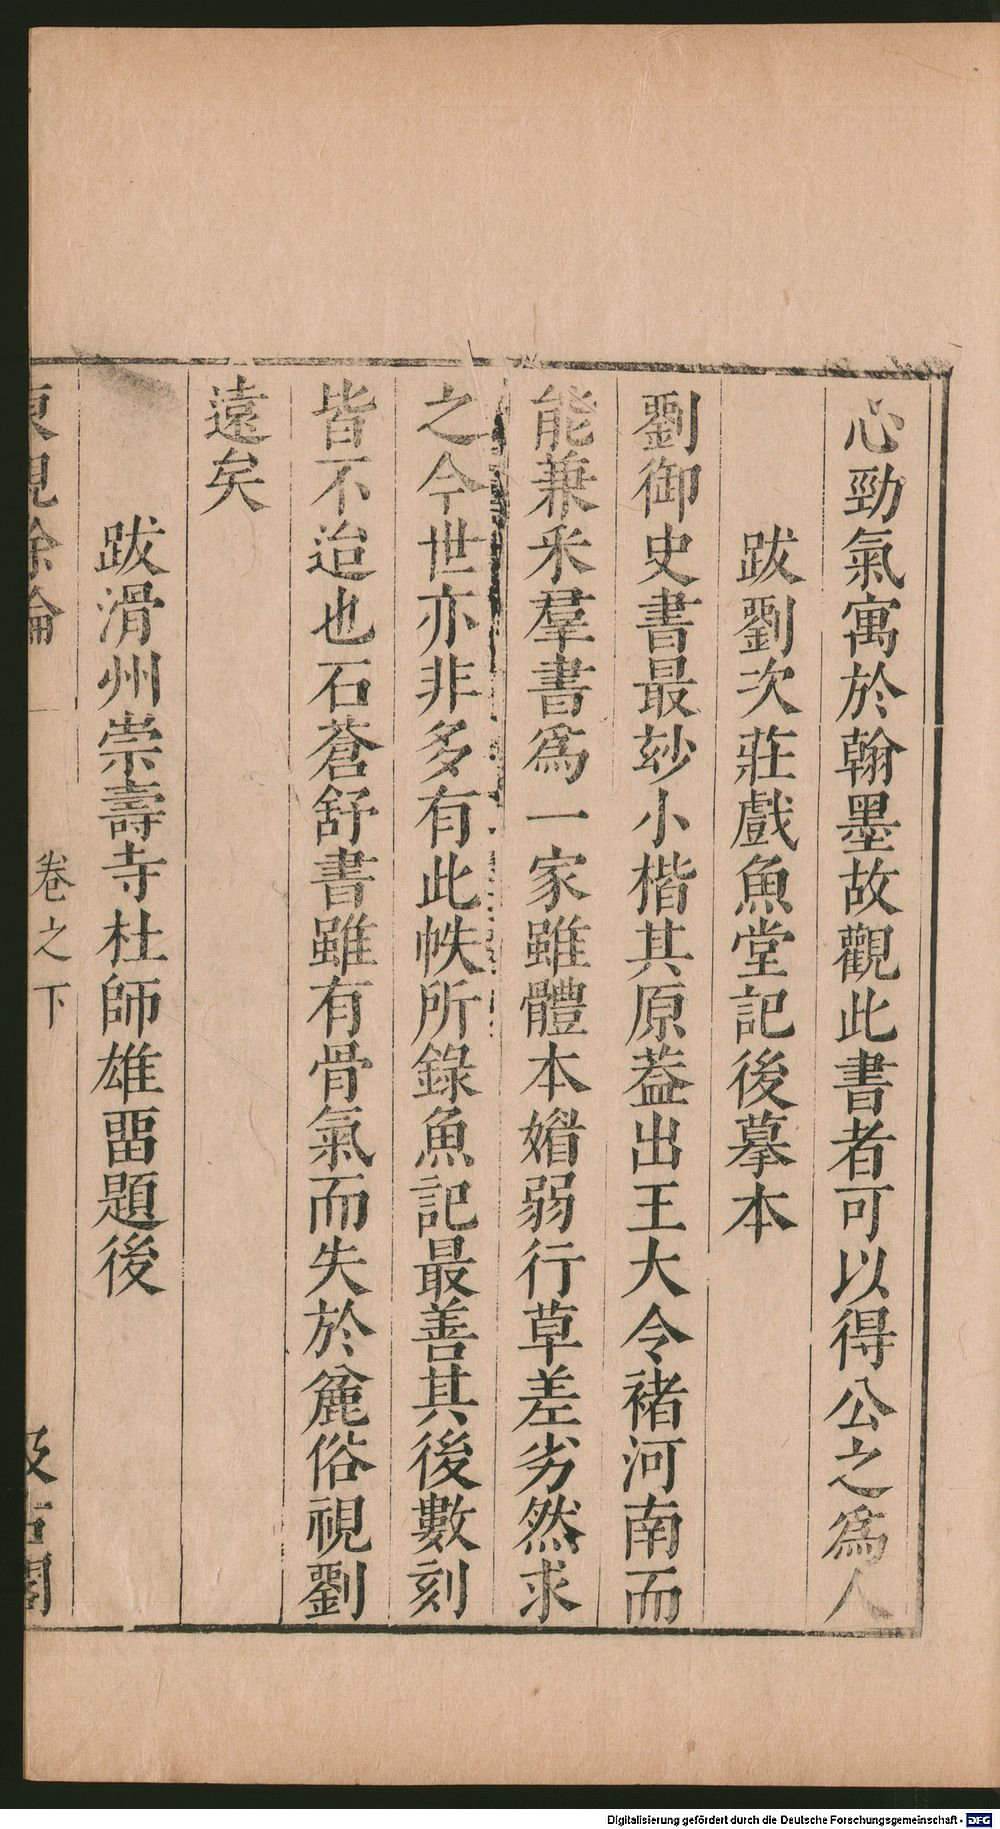 心勁氣寓於翰墨故觀此書者可以得公之爲人
跋劉次莊戲魚堂記後摹本
劉御史書最玅小楷其原葢出王大令褚河南而
能兼采羣書爲一家雖體本媘弱行草差劣然求
之今世亦非多有此帙所錄魚記最善其後數刻
皆不迨也石蒼舒書雖有骨氣而失於麄俗視劉
遠矣
跋滑州崇壽寺杜師雄畱題後
東觀餘論
卷之下
汲古閣
Digitalisierung gefördert durch die Deutsche Forschungsgemeinschaft - DFG